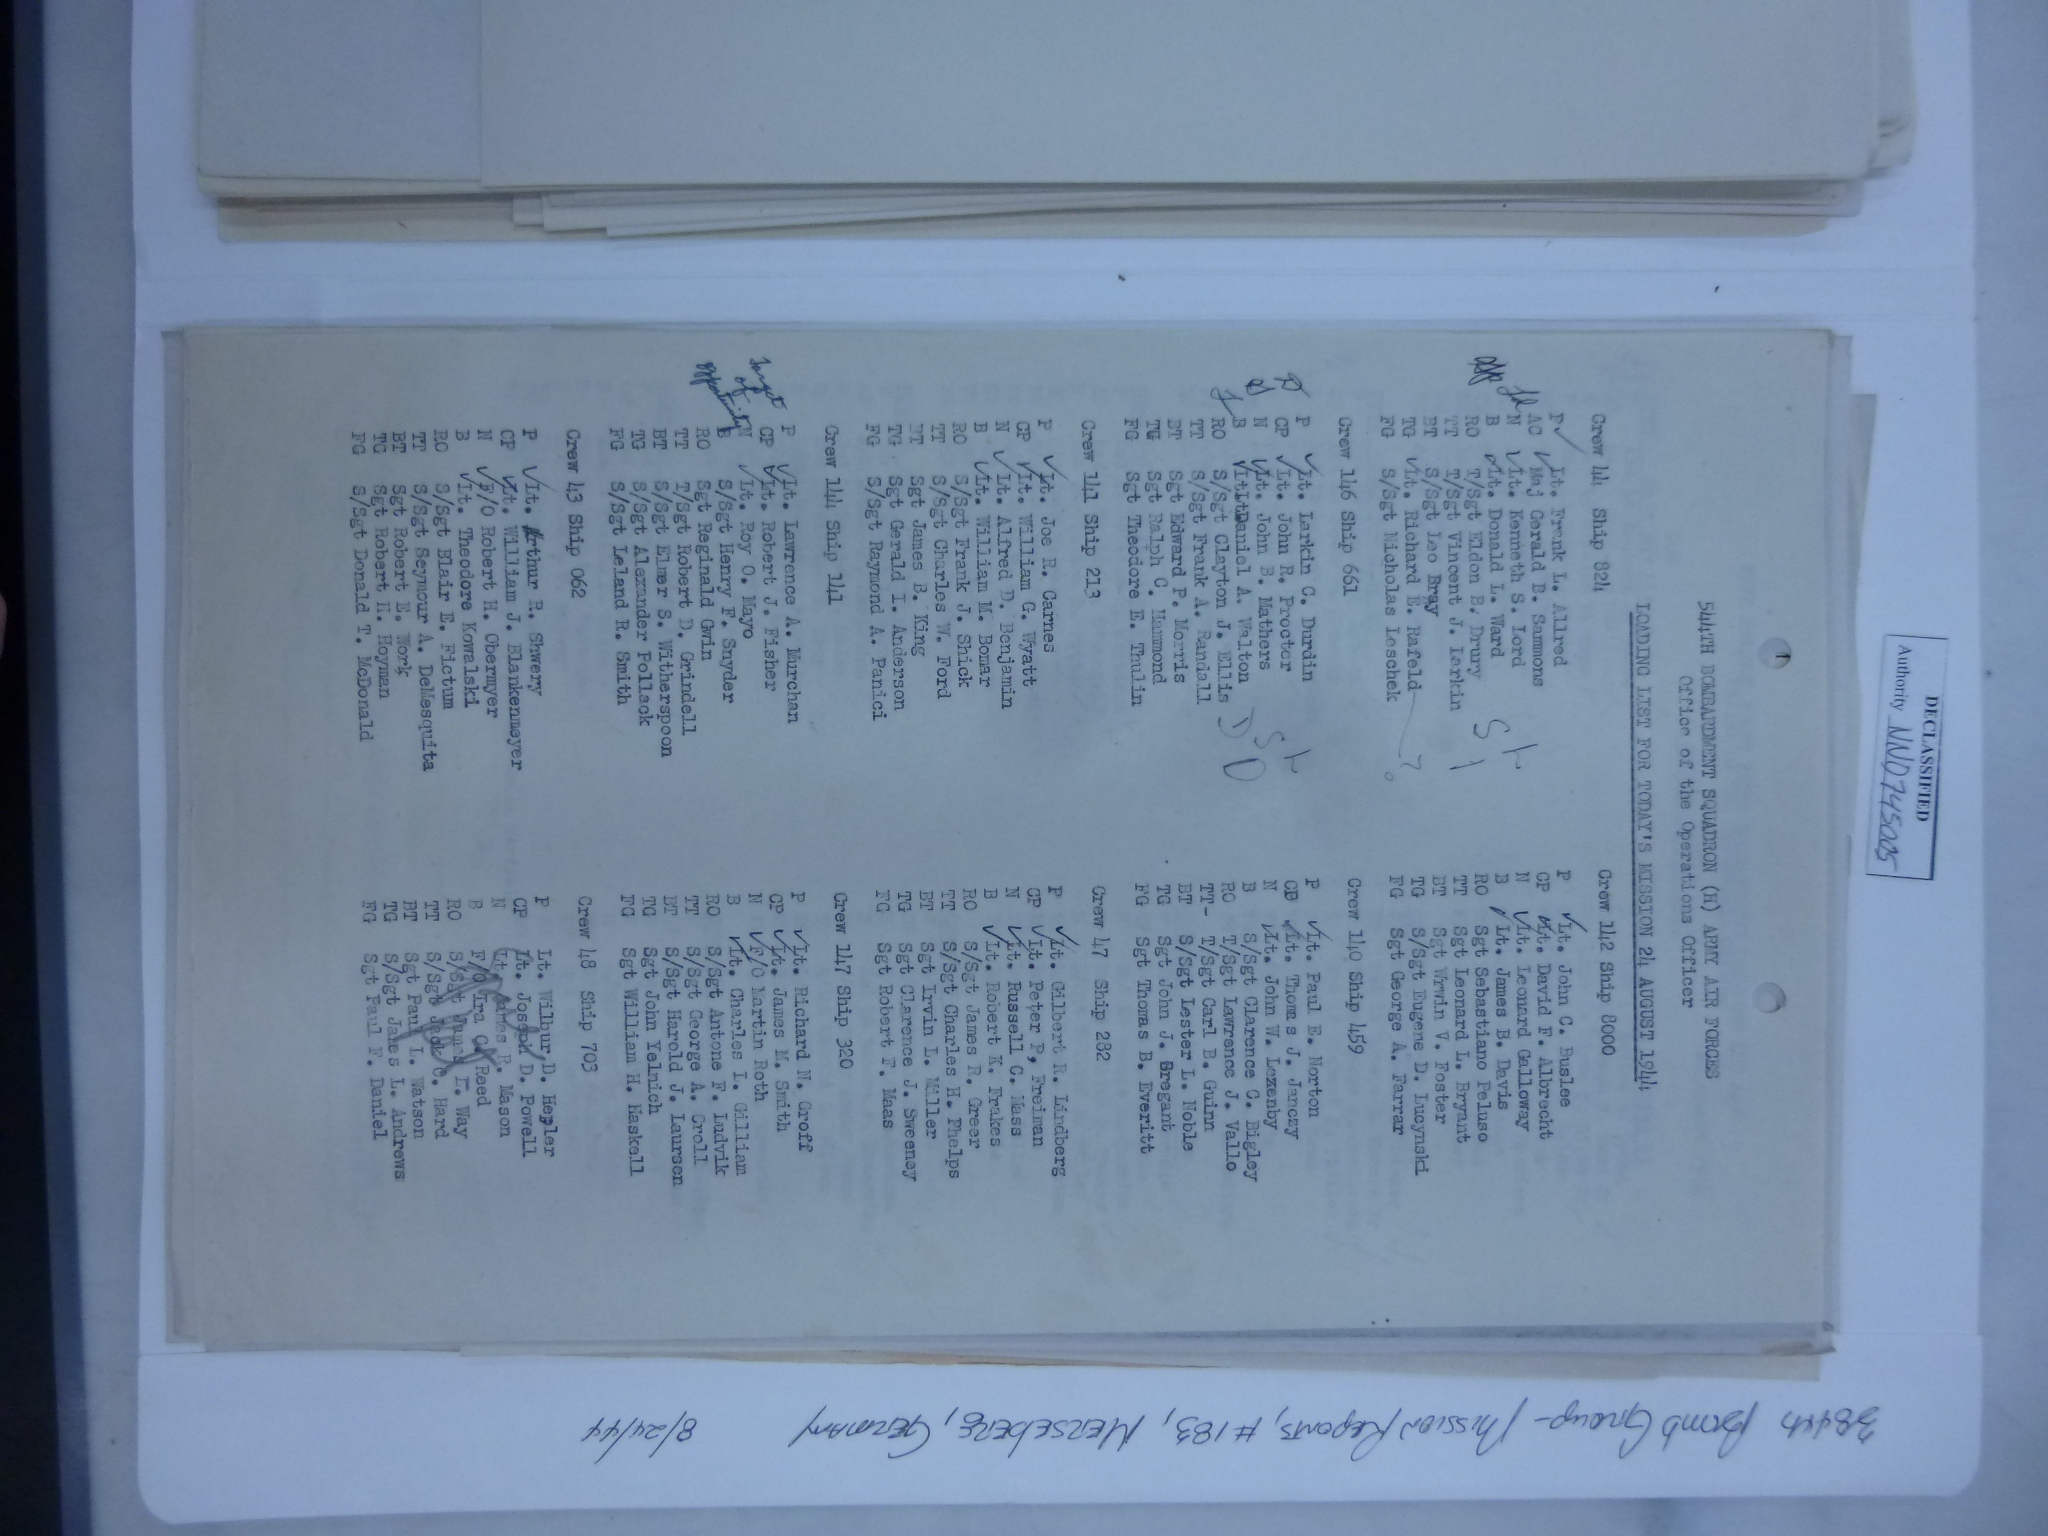 DECLASSIFIED
Authority NND745005
544TH BOMBARDMENT SQUADRON (H) ARMY AIR FORCES
Office of the Operations Officer
LOADING LIST FOR TODAY'S MISSION 24 AUGUST 1944
Crew 44 Ship 824
P Lt. Frank L. Allred
AC Maj Gerald B. Sammons
N Lt. Kenneth S. Lord
B Lt. Donald L. Ward
RO T/Sgt Eldon B. Drury
TT T/Sgt Vincent J. Larkin
BT S/Sgt Leo Bray
TG Lt. Richard E. Rafeld ?
FG S/Sgt Nicholas Leschek
Crew 146 Ship 661
P Lt. Larkin C. Durdin
CP Lt. John R. Proctor
N Lt. John B. Mathers
B Lt. Daniel A. Walton
RO S/Sgt Clayton J. Ellis
TT S/Sgt Frank A. Randall
BT Sgt Edward P. Morris
TG Sgt Ralph C. Hammond
FG Sgt Theodore E. Thulin
Crew 141 Ship 213
P Lt. Joe R. Carnes
CP Lt. William G. Wyatt
N Lt. Alfred D. Benjamin
B Lt. William M. Bomar
RO S/Sgt Frank J. Shick
TT S/Sgt Charles W. Ford
BT Sgt James B. King
TG Sgt Gerald I. Anderson
FG S/Sgt Raymond A. Panici
Crew 144 Ship 141
P Lt. Lawrence A. Murchan
CP Lt. Robert J. Fisher
N Lt. Roy O. Mayo
B S/Sgt Henry F. Snyder
RO Sgt Reginald Gwin
TT T/Sgt Robert D. Grindell
BT S/Sgt Elmer S. Witherspoon
TG S/Sgt Alexander Pollack
FG S/Sgt Leland R. Smith
Target of opportunity
Crew 43 Ship 062
P Lt. Arthur R. Shwery
CP Lt. William J. Blankenmeyer
N F/O Robert H. Obermyer
B Lt. Theodore Kowalski
RO S/Sgt Blair E. Fictum
TT S/Sgt Seymour A. DeMesquita
BT Sgt Robert E. Work
TG Sgt Robert H. Hoyman
FG S/Sgt Donald T. McDonald
Crew 142 Ship 8000
P Lt. John C. Buslee
CP Lt. David F. Albrecht
N Lt. Leonard Galloway
B Lt. James B. Davis
RO Sgt Sebastiano Peluso
TT Sgt Leonard L. Bryant
BT Sgt Wrwin V. Foster
TG S/Sgt Eugene D. Lucynski
FG Sgt George A. Farrar
Crew 140 Ship 459
P Lt. Paul E. Norton
CP Lt. Thomas J. Janczy
N Lt. John W. Lezenby
B S/Sgt Clarence C. Bigley
RO T/Sgt Lawrence J. Vallo
TT- T/Sgt Carl B. Guinn
BT S/Sgt Lester L. Noble
TG Sgt John J. Bregant
FG Sgt Thomas B. Everitt
Crew 47 Ship 282
P Lt. Gilbert R. Lindberg
CP Lt. Peter P, Freiman
N Lt. Russell C. Mass
B Lt. Robert K. Frakes
RO S/Sgt James R. Greer
TT S/Sgt Charles H. Phelps
BT Sgt Irvin L. Miller
TG Sgt Clarence J. Sweeney
FG Sgt Robert F. Maas
Crew 147 Ship 320
P Lt. Richard N. Groff
CP Lt. James M. Smith
N F/O Martin Roth
B Lt. Charles L. Gilliam
RO S/Sgt Antone F. Ludvik
TT S/Sgt George A. Croll
BT S/Sgt Harold J. Laursen
TG Sgt John Yelnich
FG Sgt William H. Haskell
Crew 48 Ship 703
P Lt. Wilbur D. Hepler
CP Lt. Joseph D. Powell
N Lt. James P. Mason
B F/O Ira C. Reed
RO S/Sgt James E. Way
TT S/Sgt Jack C. Hard
BT Sgt Paul L. Watson
TG S/Sgt James L. Andrews
FG Sgt Paul F. Daniel
384th Bomb Group- Mission Reports, #183, Merseberg, Germany 8/24/44